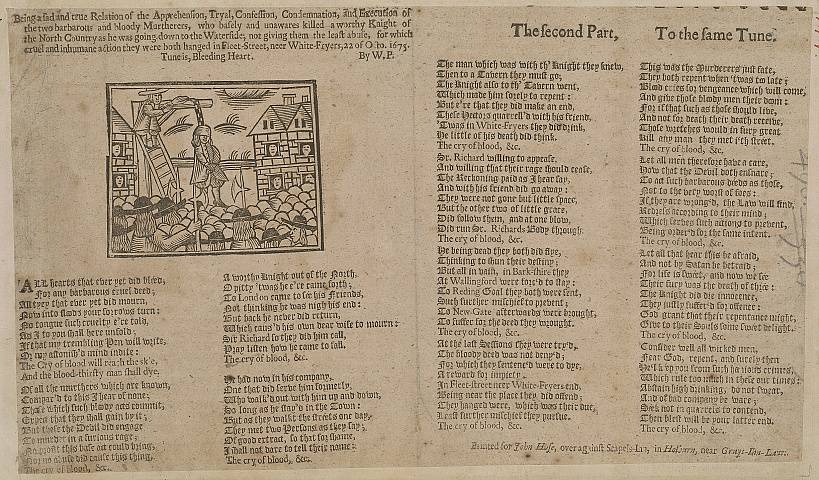 Being a sad and true Relation of the Apprehension, Tryal, Confession, Condemnation, and Execution of
the two barbarous and bloody Murtherers, who basely and unawares killed a worthy Knight of
the North Country as he was going down to the Waterside, not giving them the least abuse, for which
cruel and inhumane action they were both hanged in Fleet-Street, neer White-Fryers, 22 of Octo. 1675.
Tune is, Bleeding Heart. By W. P.
ALL hearts that ever yet did bleed,
For any barbarous cruel deed;
All eyes that ever yet did mourn,
Now into floods your sorrows turn:
No tongue such cruelty e're told,
As I to you shall here unfold;
If that my trembling Pen will write,
Or my astonish'd mind indite:
The Cry of blood will reach the skie,
And the blood-thirsty man shall dye.
Of all the murthers which are known,
Compar'd to this I hear of none;
Those which such bloody acts commit,
Expect that they shall gain by it;
But these the Devil did engage
To murder in a furious rage;
No profit this base act could bring,
Nor no abuse did cause this thing.
The cry of blood, &c.
A worthy Knight out of the North,
O pitty 'twas he e're came forth;
To London came to see his Friends,
Not thinking he was nigh his end:
But back he never did return,
Which caus'd his own dear wife to mourn:
Sir Richard so they did him call,
Pray listen how he came to fall.
The cry of blood, &c.
He had now in his company,
One that did serve him formerly,
Who walk'd out with him up and down,
So long as he stay'd in the Town:
But as they walkt the streets one day,
They met two Persons as they say;
Of good extract, so that for shame,
I shall not dare to tell their name:
The cry of blood, &c.
The second Part, To the same Tune.
The man which was with th' Knight they knew,
Then to a Tavern they must go;
The Knight also to th' Tavern went,
Which made him sorely to repent:
But e're that they did make an end,
These Hectors quarrell'd with his friend,
'Twas in White-Fryers they did drink,
He little of his death did think.
The cry of blood, &c.
Sr. Richard willing to appease,
And willing that their rage should cease,
The Reckoning paid as I hear say,
And with his friend did go away:
They were not gone but little space,
But the other two of little grace,
Did follow them, and at one blow,
Did run Sr. Richards Body through.
The cry of blood, &c.
He being dead they both did flye,
Thinking to shun their destiny;
But all in vain, in Bark-shire they
At Wallingford were forc'd to stay:
To Reding Goal they both were sent,
Such further mischief to prevent;
To New-Gate afterwards were brought,
To suffer for the deed they wrought.
The cry of blood, &c.
At the last Sessions they were try'd,
The bloody deed was not deny'd;
For which they sentenc'd were to dye,
A reward for impiety.
In Fleet-street neer White-Fryers end,
Being near the place they did offend;
They hanged were, which was their due,
Least further mischief they pursue.
The cry of blood, &c.
This was the Murderers just fate,
They both repent when 'twas to late;
Blood cries for vengeance which will come,
And give those bloody men their doom:
For if that such as those should live,
And not for death their death receive,
Those wretches would in fury great
Kill any man they met i'th street.
The cry of blood, &c.
Let all men therefore have a care,
How that the Devil doth ensnare;
To act such barbarous deeds as those,
Not to the very worst of foes:
If they are wrong'd, the Law will find,
Redress according to their mind;
Which serves such actions to prevent,
Being order'd for the same intent.
The cry of blood, &c.
Let all that hear this be afraid,
And not by Satan be betraid;
For life is sweet, and now we see
Their fury was the death of three:
The Knight did die innocence,
They justly suffer'd for offence:
God grant that their repentance might,
Give to their Souls some sweet delight.
The cry of blood, &c.
Consider well all wicked men,
Fear God, repent, and surely then
He'll keep you from such hainous crimes,
Which rule too much in these our times:
Abstain high drinking, do not swear,
And of bad company be ware;
Seek not in quarrels to contend,
Then blest will be your latter end.
The cry of blood, &c.
Printed for John Huse, over against Staples-Inn, in Holburn, near Grays-Inn-Lane.